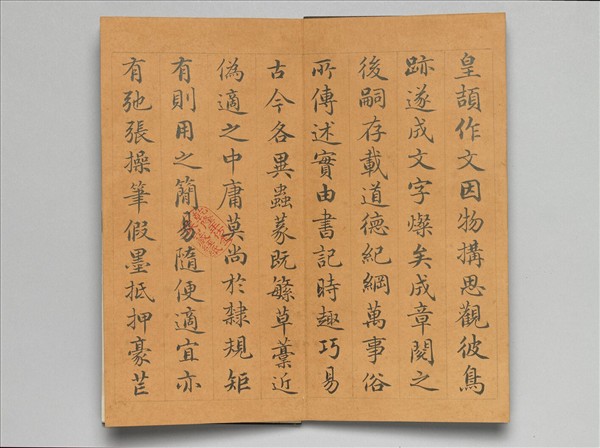 皇頡作文因物搆思觀彼鳥
跡遂成文字燦矣成章閱之
後嗣存載道德紀綱萬事俗
所傳述實由書記時趣巧易
古今各異蟲篆既繁草藁近
偽適之中庸莫尚於隸規矩
有則用之簡易隨便適宜亦
有弛張操筆假墨抵押豪芒